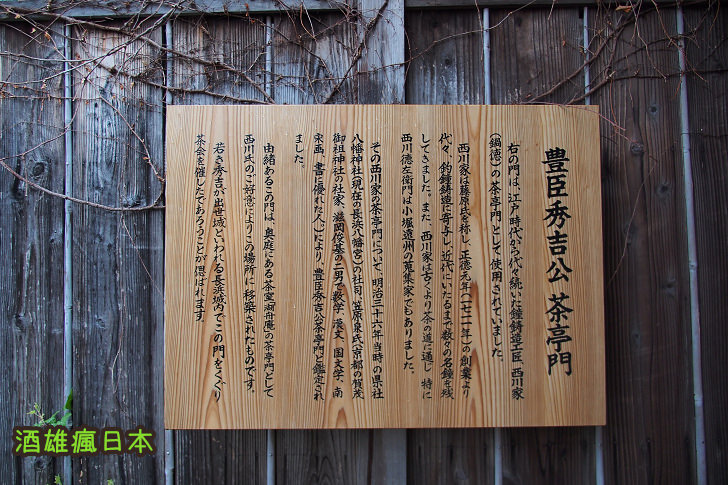 豊臣秀吉公 茶亭門
右の門は、江戸時代から代々続いた鐘鋳造工匠、西川家
(鍋徳)の茶亭門として使用されていました。
西川家は藤原氏を称し、正徳元年(一七一一年)の創業より
代々、釣鐘鋳造に寄与し、近代にいたるまで数々の名鐘を残
してきました。また、西川家は古くより茶の道に通じ 特に
西川徳左衛門は小堀遠州の蒐集家でもありました。
その西川家の茶亭門について、明治三十六年当時の県社
八幡神社(現在の長浜八幡宮)の社司、笠原泉氏(京都の賀茂
御祖神社の社家、滋岡俊基の二男で数学、漢文、国文学、南
宋画、書に優れた人)により、豊臣秀吉公茶亭門と鑑定され
ました。
由緒あるこの門は、奥庭にある茶室両舟庵の茶亭門として
西川氏のご好意によりこの場所に移築されたものです。
若き秀吉が出世城といわれる長浜城内でこの門をくぐり
茶会を催したであろうことが偲ばれます。
酒雄瘋日本